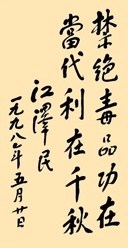 禁绝毒品功在
當代利在千秋
江澤民
一九九八年五月廿日